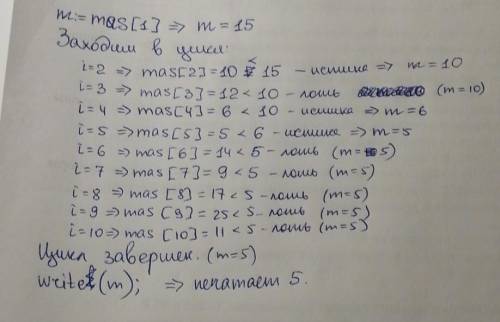 m:= mas[1] => m = 15
Заходим в цикл:
i=2 => mas[2] = 10 < 15 - истина => m = 10
i=3 => mas[3] = 12 < 10 - лошь (m=10)
i=4 => mas[4] = 6 < 10 - истина => m=6
i=5 => mas[5] = 5 < 6 - истина => m=5
i=6 => mas[6] = 14 < 5 - лошь (m=5)
i=7 => mas[7] = 9 < 5 - лошь (m=5)
i=8 => mas[8] = 17 < 5 - лошь (m=5)
i=9 => mas[9] = 25 < 5 - лошь (m=5)
i=10 => mas[10] = 11 < 5 - лошь (m=5)
Цикл завершен. (m=5)
write(m); => печатает 5.